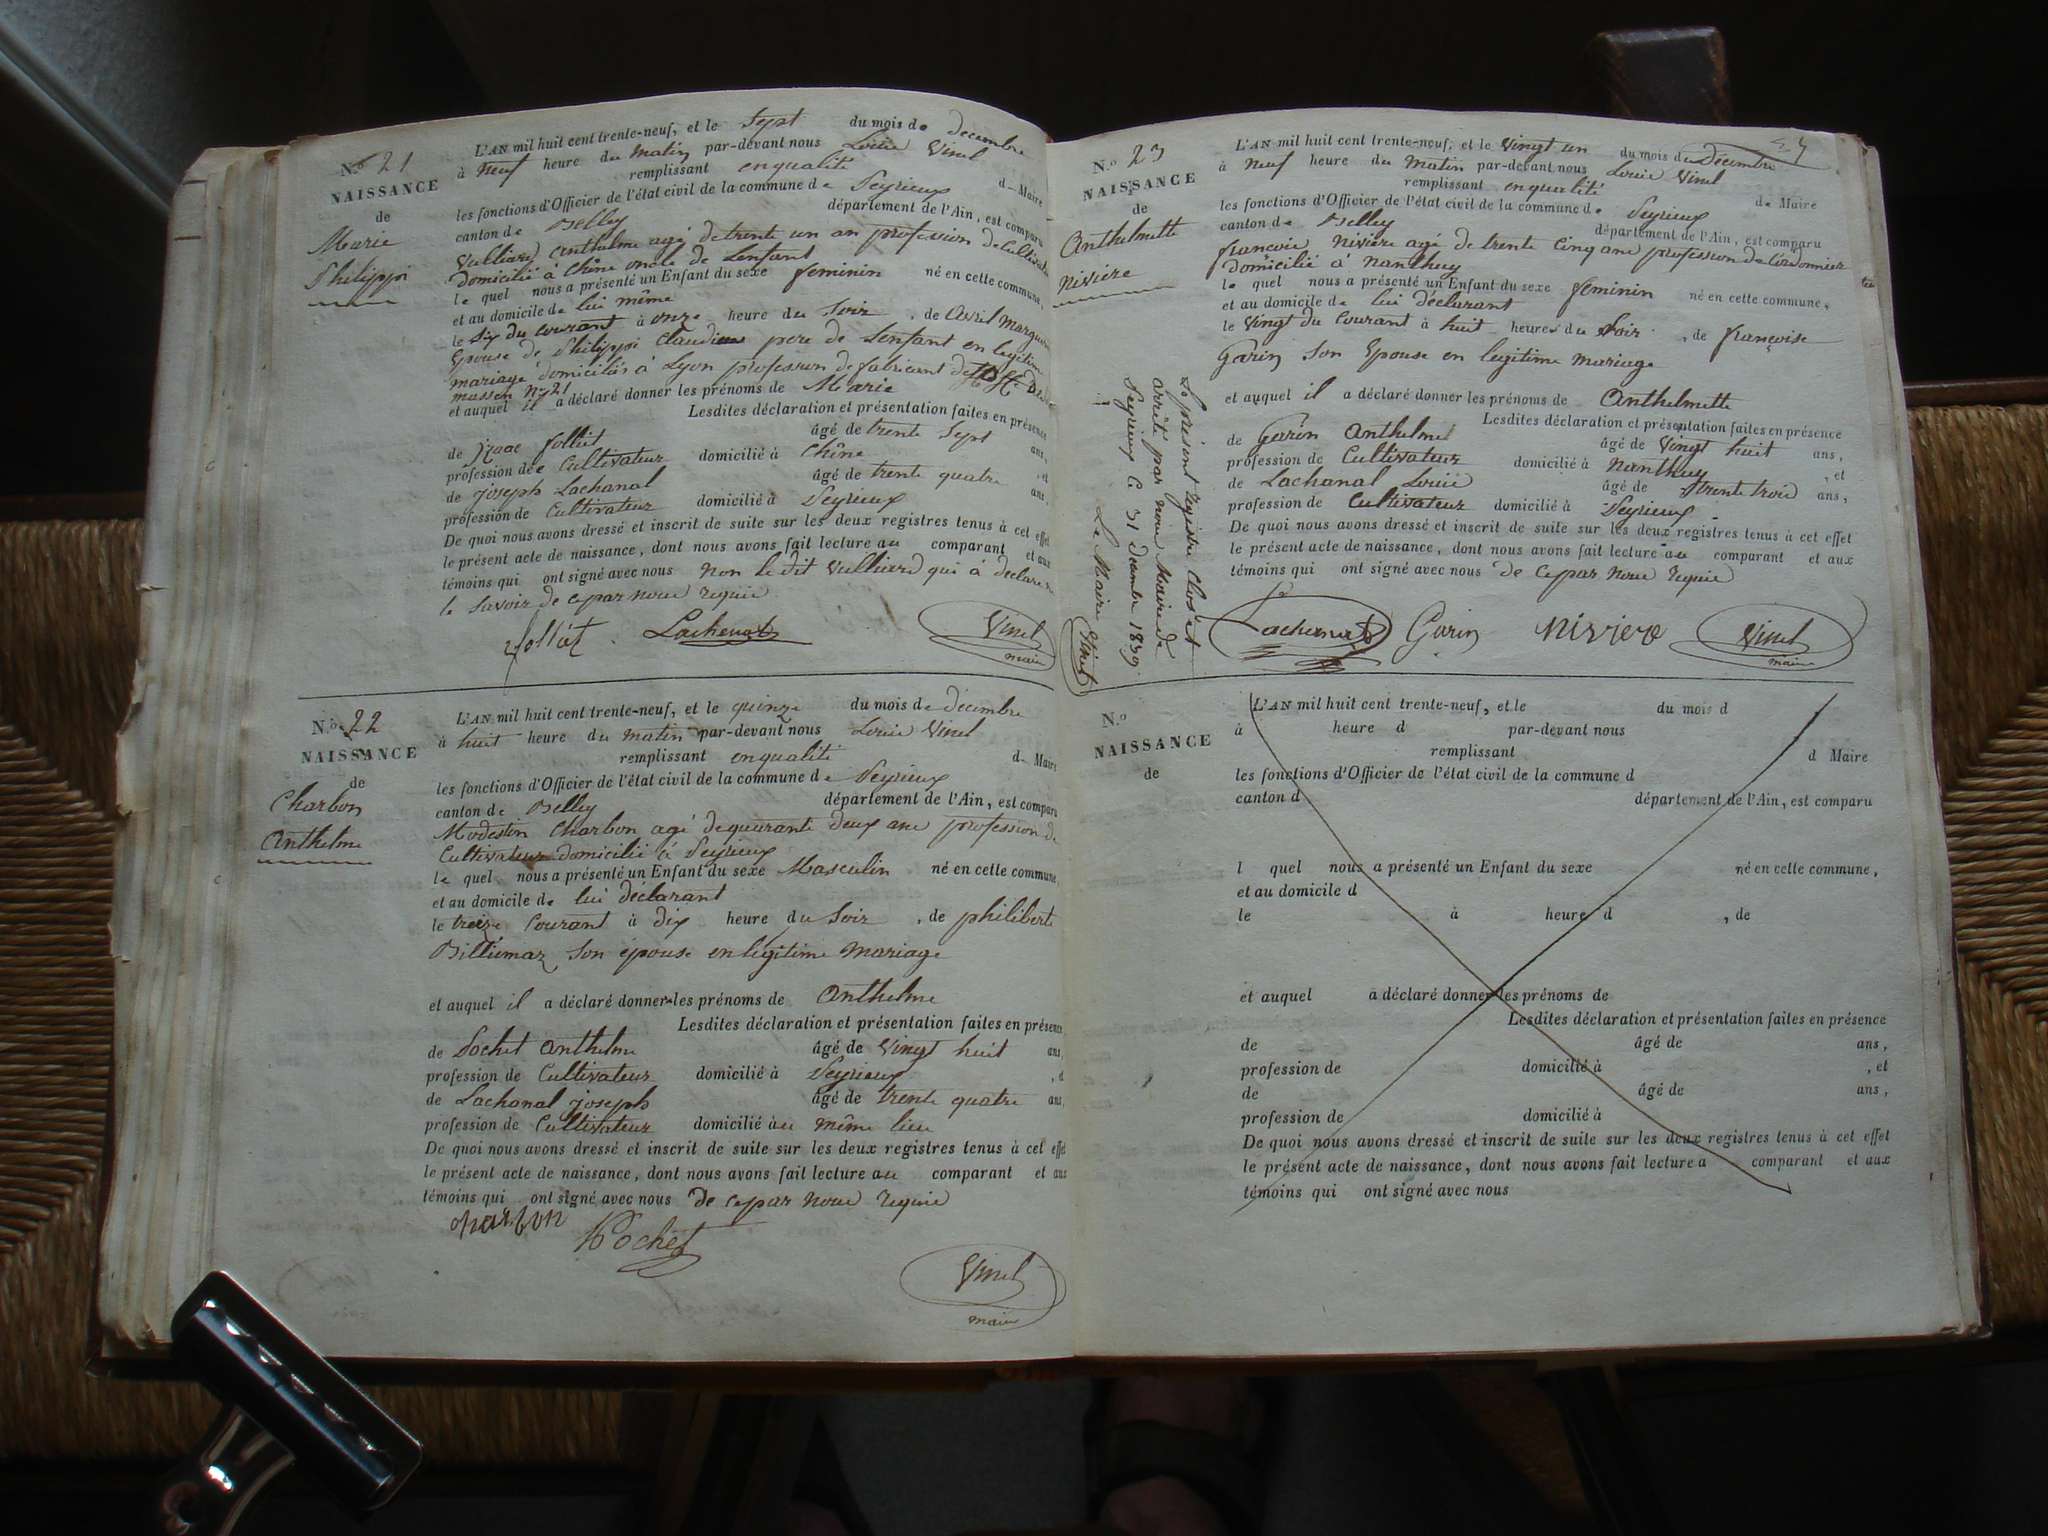 N.o 21
NAISSANCE
de
Marie
Philippi
L'AN mil huit cent trente-neuf, et le Sept du mois de decembre
à neuf heure du matin par-devant nous Louis Vinel
remplissant en qualité de Maire
les fonctions d'Officier de l'état civil de la commune de Peyrieux
canton de Belley département de l'Ain, est comparu
Vulliard Anthelme agé de trente un an profession de Cultivate
domicilié à Chêne oncle de Lenfant
le quel nous a présenté un Enfant du sexe feminin né en cette commune,
et au domicile de lui même
le Six du courant à onze heure du Soir , de Avril
Epouse de Philippi Claudius pere de Lenfant en legitime
mariage domiciliés à Lyon profession de fabricant de
N° 21
et auquel il a déclaré donner les prénoms de Marie
Lesdites déclaration et présentation faites en présence
de Izaac folliet âgé de trente Sept ans,
profession de Cultivateur domicilié à Chêne , et
de Joseph Lachanal âgé de trente quatre ans,
profession de Cultivateur domicilié à Peyrieux
De quoi nous avons dressé et inscrit de suite sur les deux registres tenus à cet effet
le présent acte de naissance, dont nous avons fait lecture au comparant et aux
témoins qui ont signé avec nous non le dit Vulliard qui à déclaré ne
le Savoir de ce par nous requis
folliet Lachenal Vinel
maire
N.o 22
NAISSANCE
de
Charbon
Anthelme
L'AN mil huit cent trente-neuf, et le quinze du mois de décembre
à huit heure du matin par-devant nous Louis Vinel
remplissant en qualité de Maire
les fonctions d'Officier de l'état civil de la commune de Peyrieux
canton de Belley département de l'Ain, est comparu
Modestin Charbon agé de quarante deux ans profession de
Cultivateur domicilié à Peyrieux
le quel nous a présenté un Enfant du sexe Masculin né en cette commune,
et au domicile de lui déclarant
le treize Courant à dix heure du Soir , de philiberte
Billiemaz Son épouse en légitime mariage
et auquel il a déclaré donner les prénoms de Anthelme
Lesdites déclaration et présentation faites en présence
de Pochet Anthelme âgé de Vingt huit ans,
profession de Cultivateur domicilié à Peyrieux , et
de Lachanal Joseph âgé de trente quatre ans,
profession de Cultivateur domicilié au même lieu
De quoi nous avons dressé et inscrit de suite sur les deux registres tenus à cet effet
le présent acte de naissance, dont nous avons fait lecture au comparant et aux
témoins qui ont signé avec nous de ce par nous requis
charbon
Pochet
Vinel
maire
N.o 23
NAISSANCE
de
Anthelmette
Nivière
L'AN mil huit cent trente-neuf, et le Vingt un du mois de décembre
à neuf heure du matin par-devant nous Louis Vinel
remplissant en qualité de Maire
les fonctions d'Officier de l'état civil de la commune de Peyrieux
canton de Belley département de l'Ain, est comparu
françois Nivière agé de trente cinq ans profession de Cordonnier
domicilié à Nanthuy
le quel nous a présenté un Enfant du sexe feminin né en cette commune,
et au domicile de lui déclarant
le Vingt du Courant à huit heures du Soir , de françoise
Garin Son Epouse en legitime mariage
et auquel il a déclaré donner les prénoms de Anthelmette
Lesdites déclaration et présentation faites en présence
de Garin Anthelme âgé de Vingt huit ans,
profession de Cultivateur domicilié à Nanthuy , et
de Lachanal Louis âgé de trente trois ans,
profession de Cultivateur domicilié à Peyrieux
De quoi nous avons dressé et inscrit de suite sur les deux registres tenus à cet effet
le présent acte de naissance, dont nous avons fait lecture au comparant et aux
témoins qui ont signé avec nous de ce par nous requis
Lachenal Garin Niviere Vinel
maire
Le présent Registre Clos et
arrêté par nous Maire de
Peyrieux le 31 Décembre 1839
Le Maire Vinel
N.o
NAISSANCE
de
L'AN mil huit cent trente-neuf, et le du mois d
à heure d par-devant nous
remplissant d Maire
les fonctions d'Officier de l'état civil de la commune d
canton d département de l'Ain, est comparu
l quel nous a présenté un Enfant du sexe né en cette commune,
et au domicile d
le à heure d , de
et auquel a déclaré donner les prénoms de
Lesdites déclaration et présentation faites en présence
de âgé de ans,
profession de domicilié à , et
de âgé de ans,
profession de domicilié à
De quoi nous avons dressé et inscrit de suite sur les deux registres tenus à cet effet
le présent acte de naissance, dont nous avons fait lecture a comparant et aux
témoins qui ont signé avec nous